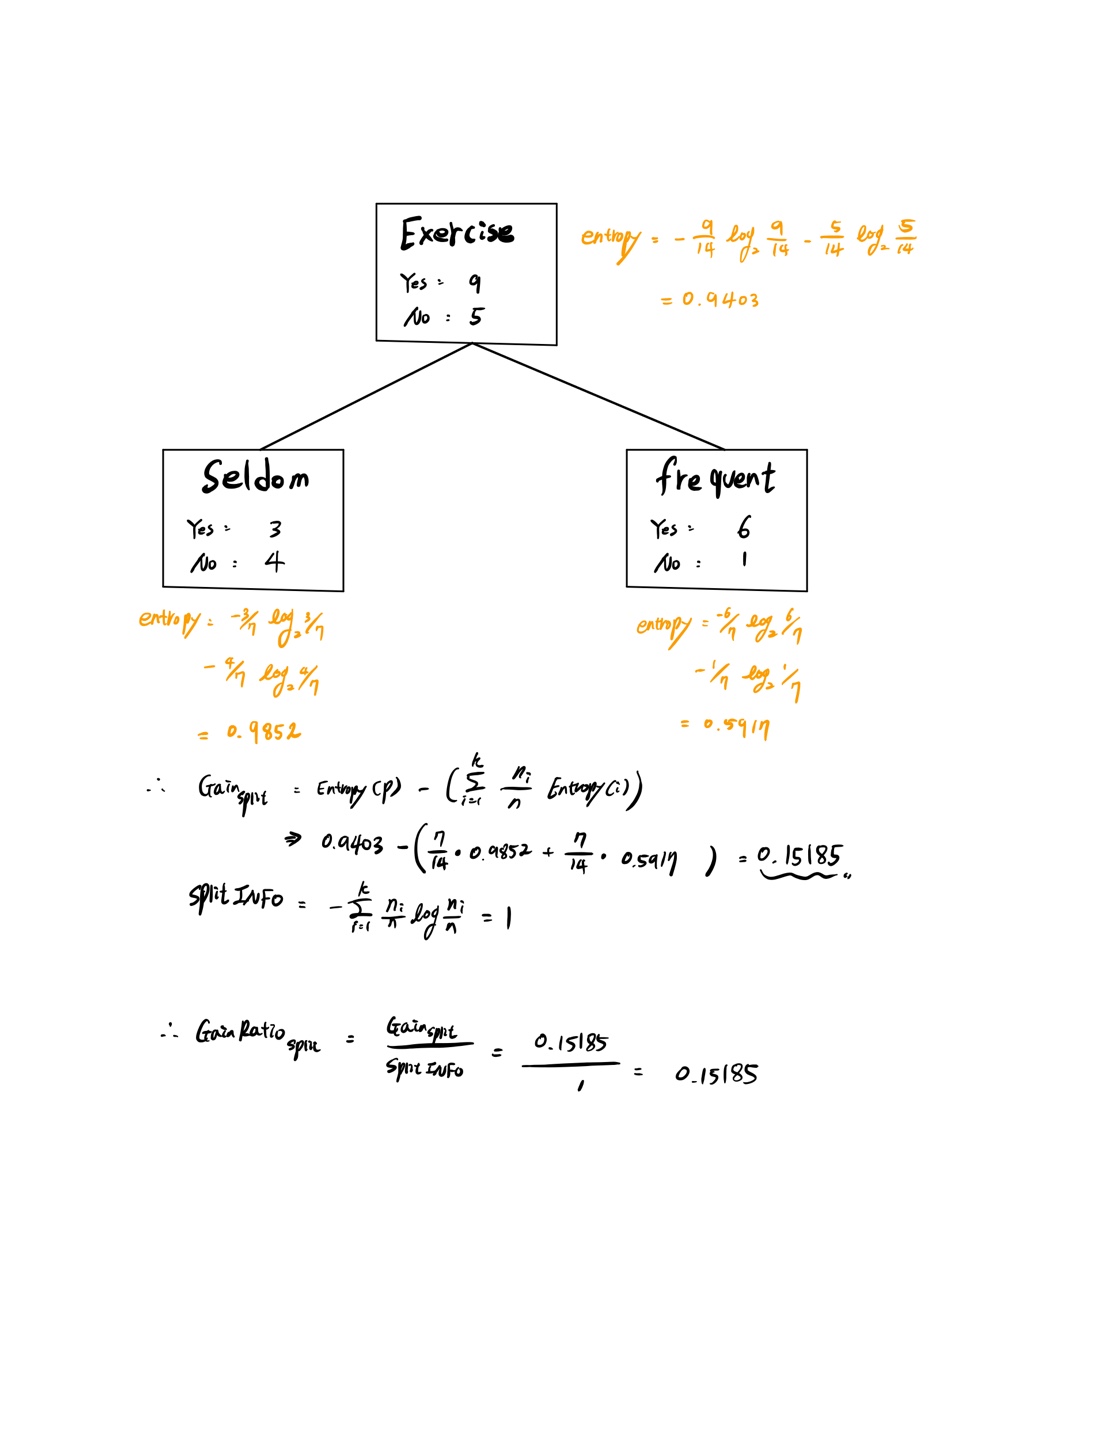 Exercise
Yes: 9
No: 5
entropy = - 9/14 log₂ 9/14 - 5/14 log₂ 5/14
= 0.9403
Seldom
Yes: 3
No: 4
frequent
Yes: 6
No: 1
entropy = -3/7 log₂ 3/7
- 4/7 log₂ 4/7
= 0.9852
entropy = -6/7 log₂ 6/7
- 1/7 log₂ 1/7
= 0.5917
∴ Gain split = Entropy(p) - (∑ᵢ₌₁ᵏ nᵢ/n Entropy(i))
⇒ 0.9403 - (7/14 · 0.9852 + 7/14 · 0.5917) = 0.15185
Split INFO = - ∑ᵢ₌₁ᵏ nᵢ/n log nᵢ/n = 1
∴ Gain Ratio split = Gain split / Split INFO = 0.15185 / 1 = 0.15185